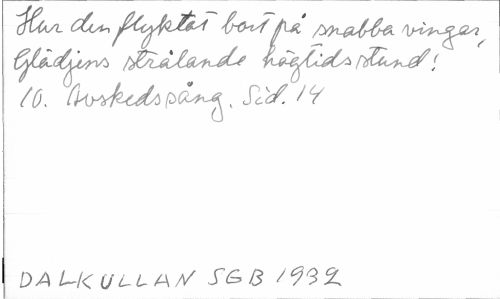 Hur den flyktat bort på snabba vingar,
Glädjens strålande högtidsstund!
10. Avskedssång. Sid. 14
DALKULLAN SGB 1932